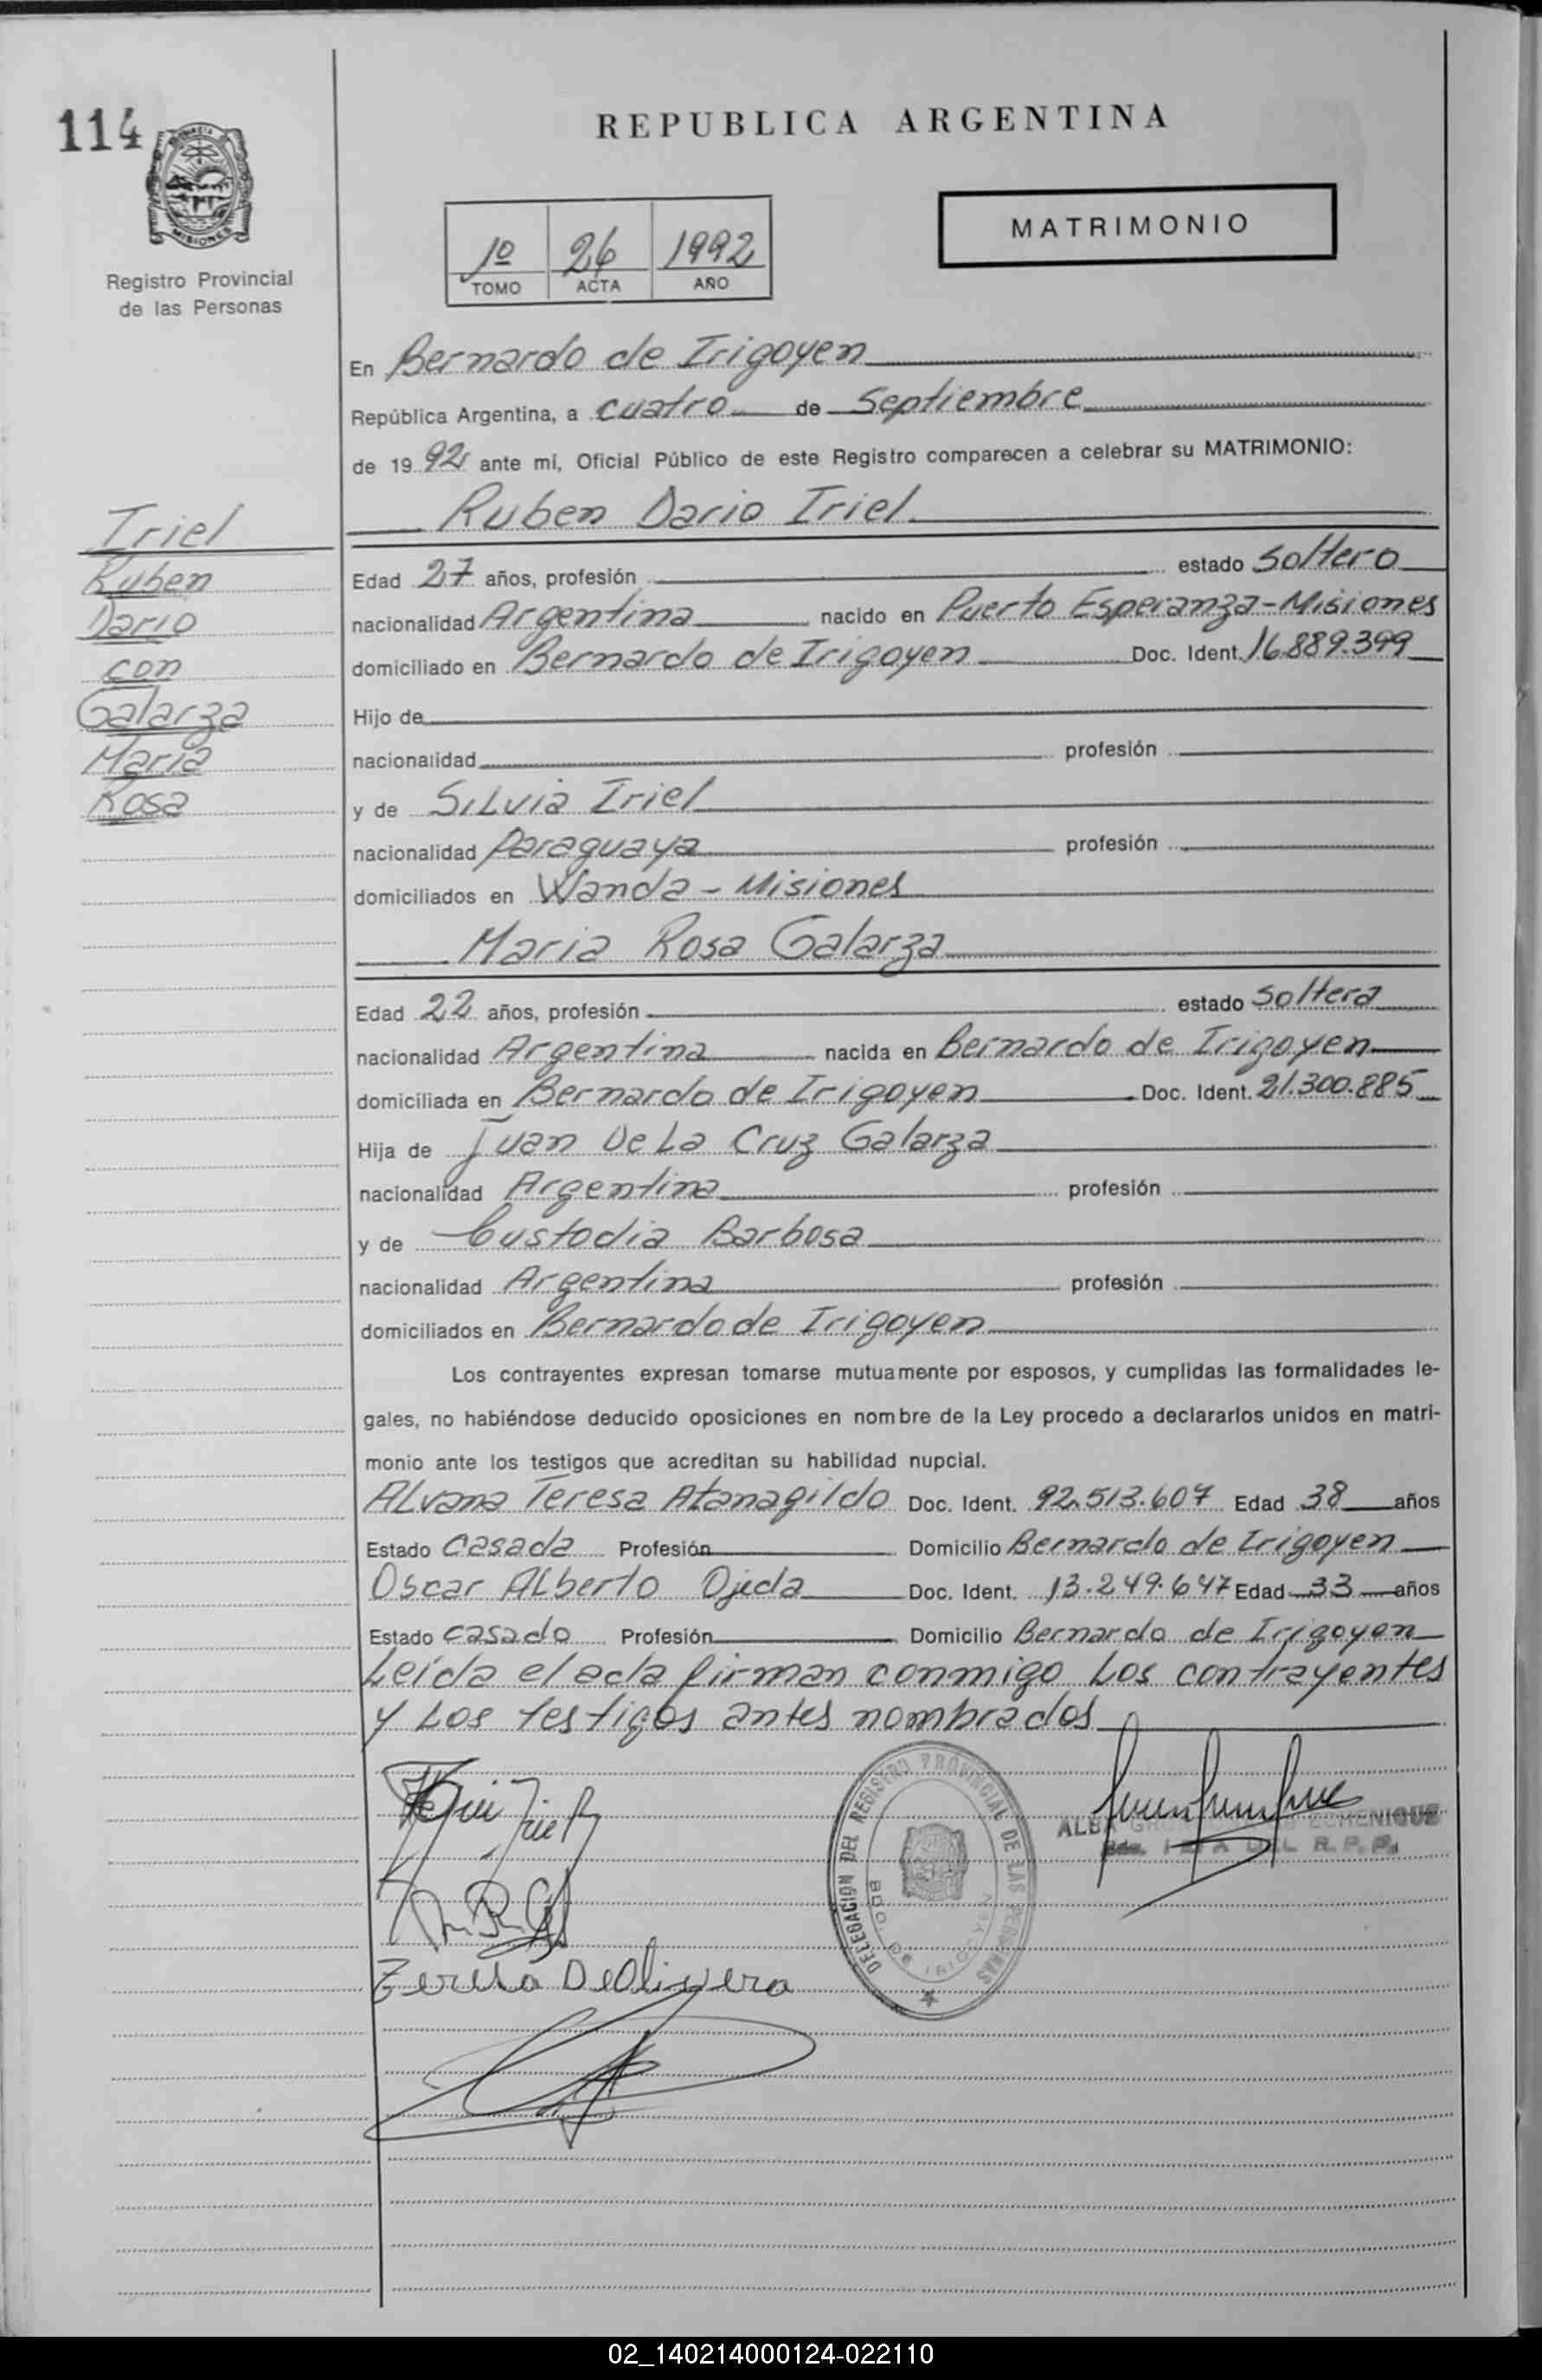 114
REPUBLICA ARGENTINA
MISIONES
Registro Provincial
de las Personas
1º 26 1992
TOMO ACTA AÑO
MATRIMONIO
En Bernardo de Irigoyen
República Argentina, a cuatro de Septiembre
de 19 92 ante mi, Oficial Público de este Registro comparecen a celebrar su MATRIMONIO:
Iriel
Ruben
Dario
con
Galarza
Maria
Rosa
Ruben Dario Iriel
Edad 27 años, profesión estado Soltero
nacionalidad Argentina nacido en Puerto Esperanza-Misiones
domiciliado en Bernardo de Irigoyen Doc. Ident. 16.889.399
Hijo de
nacionalidad profesión
y de Silvia Iriel
nacionalidad Paraguaya profesión
domiciliados en Wanda - Misiones
Maria Rosa Galarza
Edad 22 años, profesión estado Soltera
nacionalidad Argentina nacida en Bernardo de Irigoyen
domiciliada en Bernardo de Irigoyen Doc. Ident. 21.300.885
Hija de Juan De La Cruz Galarza
nacionalidad Argentina profesión
y de Custodia Barbosa
nacionalidad Argentina profesión
domiciliados en Bernardo de Irigoyen
Los contrayentes expresan tomarse mutuamente por esposos, y cumplidas las formalidades le-
gales, no habiéndose deducido oposiciones en nombre de la Ley procedo a declararlos unidos en matri-
monio ante los testigos que acreditan su habilidad nupcial.
Alvana Teresa Atanagildo Doc. Ident. 92.513.607 Edad 38 años
Estado Casada Profesión Domicilio Bernardo de Irigoyen
Oscar Alberto Ojeda Doc. Ident. 13.249.647 Edad 33 años
Estado Casado Profesión Domicilio Bernardo de Irigoyen
Leída el acta firman conmigo Los contrayentes
y Los testigos antes nombrados
DELEGACION DEL REGISTRO PROVINCIAL DE LAS PERSONAS
BDO. DE IRIGOYEN
ECHENIQUE
DEL R.P.P.
DeOlivera
02_140214000124-022110